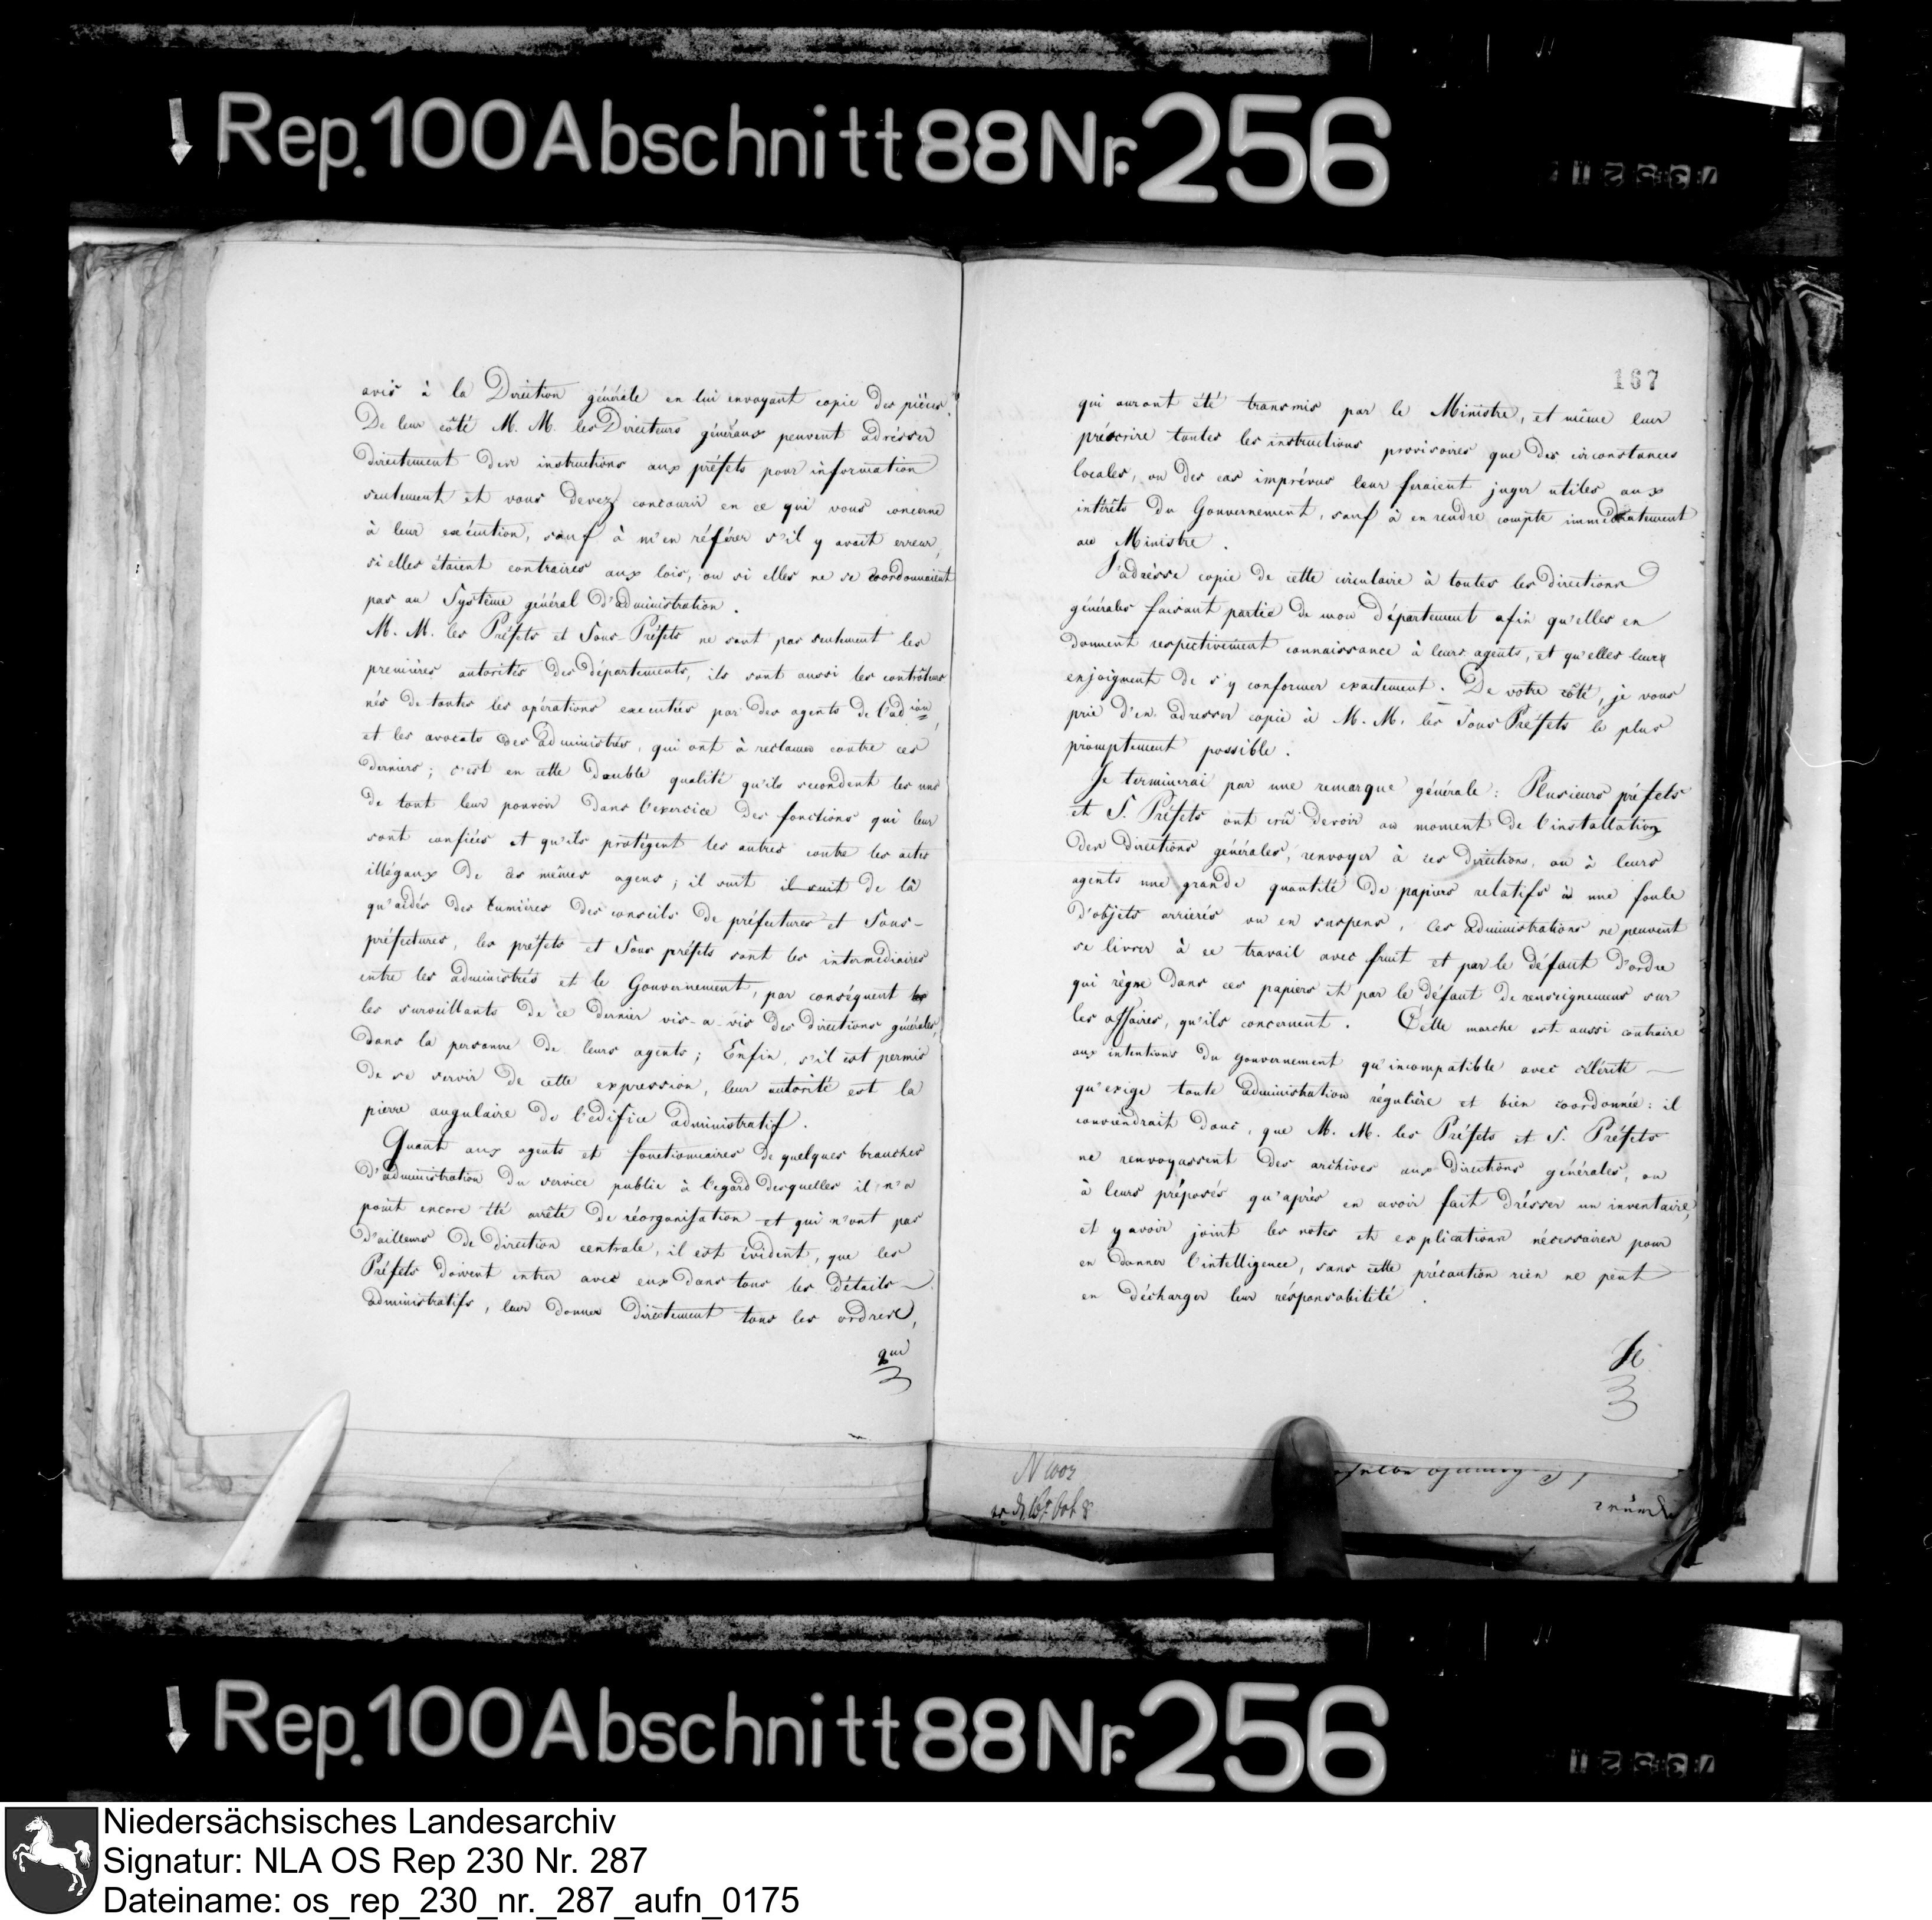 Rep. 100 Abschnitt 88 Nr. 256
avis à la Direction générale en lui envoyant copie des pièces.
De leur côté M. M. les Directeurs généraux peuvent adrésser
directement des instructions aux préfets pour information
seulement et vous devez concourir en ce qui vous concerne
à leur exécution, sauf à m'en référer s'il y avait erreur,
si elles étaient contraires aux lois, ou si elles ne se coordonnaient
pas au Système général d'administration.
M. M. les Préfets et Sous-Préfets ne sont pas seulement les
premières autorités des départements, ils sont aussi les contrôleurs
nés de toutes les opérations executées par des agents de l'adion,
et les avocats des administrés, qui ont à reclamer contre ces
derniers; c'est en cette double qualité qu'ils secondent les uns
de tout leur pouvoir dans l'exercice des fonctions qui leur
sont confiées et qu'ils protégent les autres contre les actes
illégaux de ces mêmes agens; il suit il suit de là
qu'aidés des lumières des conseils de préfectures et Sous-
préfectures, les préfets et Sous préfets sont les intermediaires
entre les administrés et le Gouvernement, par conséquent les
les surveillants de ce dernier vis-a-vis des directions générales,
dans la personne de leurs agents; Enfin, s'il est permis
de se servir de cette expression, leur autorité est la
pierre angulaire de l'édifice administratif.
Quant aux agents et fonctionnaires de quelques branches
d'administration du service public à l'egard desquelles il n'a
point encore été arrêté de réorganisation et qui n'ont pas
d'ailleurs de direction centrale, il est évident, que les
Préfets doivent entrer avec eux dans tous les détails
administratifs, leur donner directement tous les ordres,
qui
167
qui auront été transmis par le Ministre, et même leur
préscrire toutes les instructions provisoires que des circonstances
locales, ou des cas imprévus leur feraient juger utiles aux
intérêts du Gouvernement, sauf à en rendre compte immédiatement
au Ministre.
J'adrésse copie de cette circulaire à toutes les directions
générales faisant partie de mon département afin qu'elles en
donnent respectivement connaissance à leurs agents, et qu'elles leurs
enjoignent de s'y conformer exactement. De votre côté, je vous
prie d'en adresser copie à M. M. les Sous Préfets le plus
promptement possible.
Je terminerai par une remarque générale: Plusieurs préfets
et S. Préfets ont crû devoir au moment de l'installation
des directions générales, renvoyer à ces directions, ou à leurs
agents une grande quantité de papiers relatifs à une foule
d'objets arrierés ou en suspens, les administrations ne peuvent
se livrer à ce travail avec fruit et par le défaut d'ordre
qui règne dans ces papiers et par le défaut de renseignemens sur
les affaires, qu'ils concernent. Cette marche est aussi contraire
aux intentions du gouvernement qu'incompatible avec célérité
qu'exige toute administration régulière et bien coordonnée: il
conviendrait donc, que M. M. les Préfets et S. Préfets
ne renvoyassent des archives aux directions générales, ou
à leurs préposés qu'après en avoir fait drésser un inventaire,
et y avoir joint les notes et explications nécessaires pour
en donner l'intelligence, sans cette précaution rien ne peut
en décharger leur résponsabilité.
Je
Rep. 100 Abschnitt 88 Nr. 256
Niedersächsisches Landesarchiv
Signatur: NLA OS Rep 230 Nr. 287
Dateiname: os_rep_230_nr._287_aufn_0175